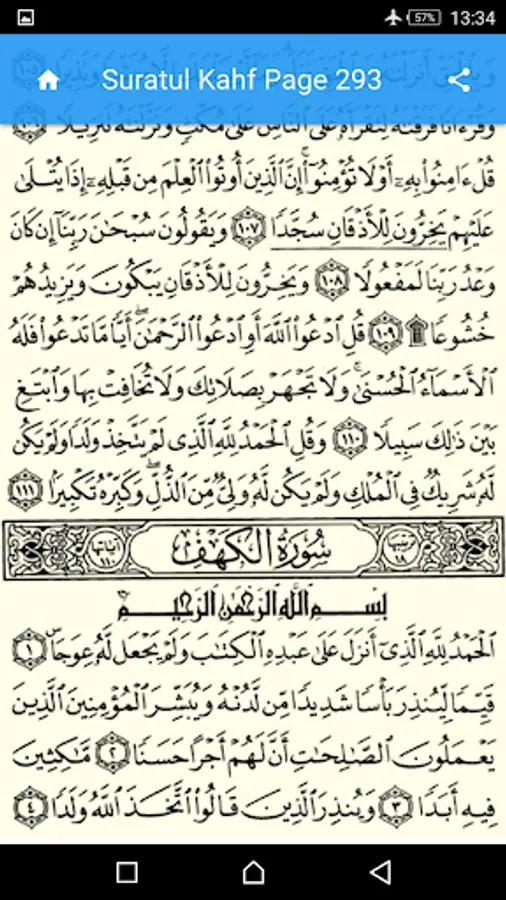 57% 13:34
Suratul Kahf Page 293
وَقُرْءَانًا فَرَقْنَٰهُ لِتَقْرَأَهُۥ عَلَى ٱلنَّاسِ عَلَىٰ مُكْثٍ وَنَزَّلْنَٰهُ تَنزِيلًا ١٠٦
قُلْ ءَامِنُوا۟ بِهِۦٓ أَوْ لَا تُؤْمِنُوٓا۟ ۚ إِنَّ ٱلَّذِينَ أُوتُوا۟ ٱلْعِلْمَ مِن قَبْلِهِۦٓ إِذَا يُتْلَىٰ
عَلَيْهِمْ يَخِرُّونَ لِلْأَذْقَانِ سُجَّدًا ١٠٧ وَيَقُولُونَ سُبْحَٰنَ رَبِّنَآ إِن كَانَ
وَعْدُ رَبِّنَا لَمَفْعُولًا ١٠٨ وَيَخِرُّونَ لِلْأَذْقَانِ يَبْكُونَ وَيَزِيدُهُمْ
خُشُوعًا ۩ ١٠٩ قُلِ ٱدْعُوا۟ ٱللَّهَ أَوِ ٱدْعُوا۟ ٱلرَّحْمَٰنَ ۖ أَيًّا مَّا تَدْعُوا۟ فَلَهُ
ٱلْأَسْمَآءُ ٱلْحُسْنَىٰ ۚ وَلَا تَجْهَرْ بِصَلَاتِكَ وَلَا تُخَافِتْ بِهَا وَٱبْتَغِ
بَيْنَ ذَٰلِكَ سَبِيلًا ١١٠ وَقُلِ ٱلْحَمْدُ لِلَّهِ ٱلَّذِى لَمْ يَتَّخِذْ وَلَدًا وَلَمْ يَكُن
لَّهُۥ شَرِيكٌ فِى ٱلْمُلْكِ وَلَمْ يَكُن لَّهُۥ وَلِىٌّ مِّنَ ٱلذُّلِّ ۖ وَكَبِّرْهُ تَكْبِيرًۢا ١١١
ترتيبها ١٨ سُورَةُ الكَهْفِ آياتها ١١٠
بِسْمِ ٱللَّهِ ٱلرَّحْمَٰنِ ٱلرَّحِيمِ
ٱلْحَمْدُ لِلَّهِ ٱلَّذِىٓ أَنزَلَ عَلَىٰ عَبْدِهِ ٱلْكِتَٰبَ وَلَمْ يَجْعَل لَّهُۥ عِوَجَا ۜ ١
قَيِّمًا لِّيُنذِرَ بَأْسًا شَدِيدًا مِّن لَّدُنْهُ وَيُبَشِّرَ ٱلْمُؤْمِنِينَ ٱلَّذِينَ
يَعْمَلُونَ ٱلصَّٰلِحَٰتِ أَنَّ لَهُمْ أَجْرًا حَسَنًا ٢ مَّٰكِثِينَ
فِيهِ أَبَدًا ٣ وَيُنذِرَ ٱلَّذِينَ قَالُوا۟ ٱتَّخَذَ ٱللَّهُ وَلَدًا ٤